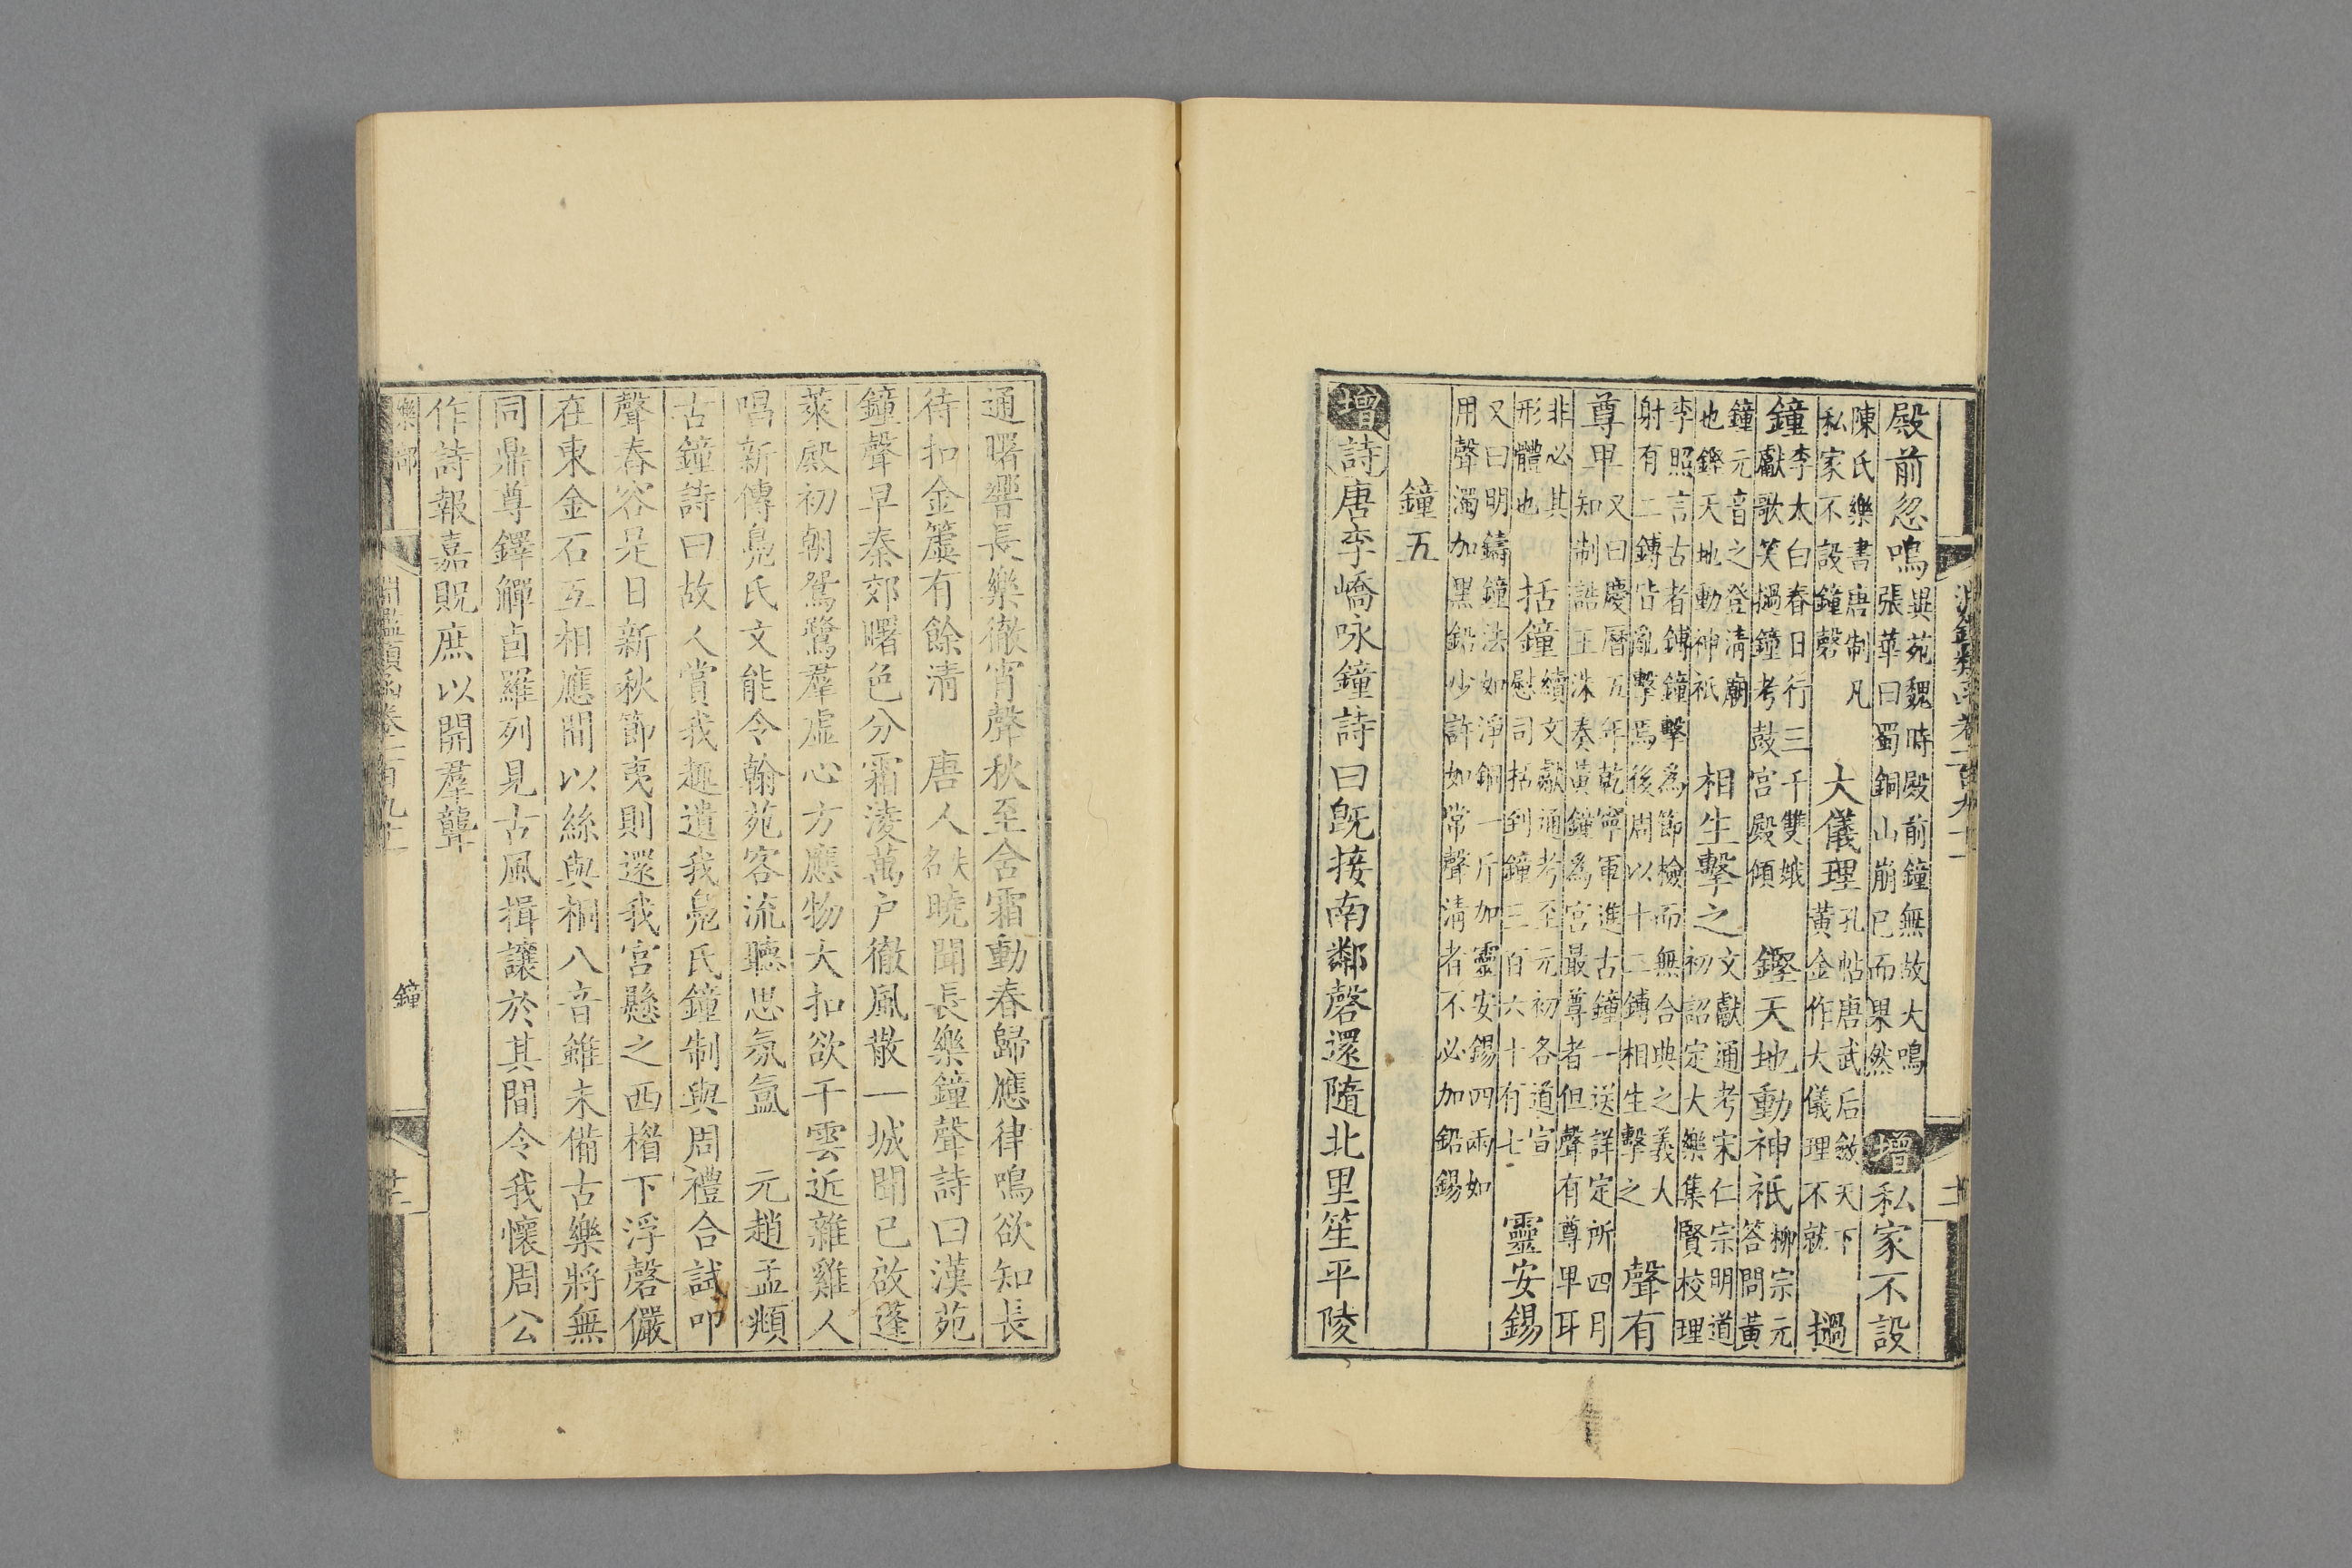 殿前忽鳴異苑魏時殿前鐘無故大鳴張華曰蜀銅山崩已而果然增私家不設
陳氏樂書唐制凡私家不設鐘磬大儀理孔帖唐武后斂天下黃金作大儀理不就撾
鐘李太白春日行三千雙娥獻歌笑撾鐘考鼓宮殿傾鏗天地動神祇柳宗元答問黃
鐘元音之登清廟也鏗天地動神祇相生擊之文獻通考宋仁宗明道初詔定大樂集賢校理
李照言古者鎛鐘擊為節檢而無合典之義人射有二鎛皆亂擊焉後周以十二鎛相生擊之聲有
尊卑又曰慶曆五年乾寧軍進古鐘一送詳定所四月知制誥王洙奏黃鐘為宮最尊者但聲有尊卑耳
非必其形體也括鐘續文獻通考至元初各道宣慰司括到鐘三百六十有七靈安錫
又曰明鑄鐘法如淨銅一斤加靈安錫四兩如用聲濁加黑鉛少許如常聲清者不必加鉛錫
鐘五
增詩唐李嶠咏鐘詩曰既接南鄰磬還隨北里笙平陵
通曙響長樂徹宵聲秋至含霜動春歸應律鳴欲知長
待扣金簴有餘清 唐人缺曉聞長樂鐘聲詩曰漢苑
鐘聲早秦郊曙色分霜淩萬戶徹風散一城聞已啟蓬
萊殿初朝鴛鷺羣虛心方應物大扣欲干雲近雜雞人
唱新傳鳧氏文能令翰苑客流聽思氛氳 元趙孟頫
古鐘詩曰故人賞我趣遺我鳧氏鐘制與周禮合試叩
聲舂容是日新秋節夷則還我宮懸之西楷下浮磬儼
在東金石互相應間以絲與桐八音雖未備古樂將無
同鼎尊鐸觶卣羅列見古風揖讓於其間令我懷周公
作詩報嘉貺庶以開羣聾
樂部 淵鑑類函卷一百九十一 鐘